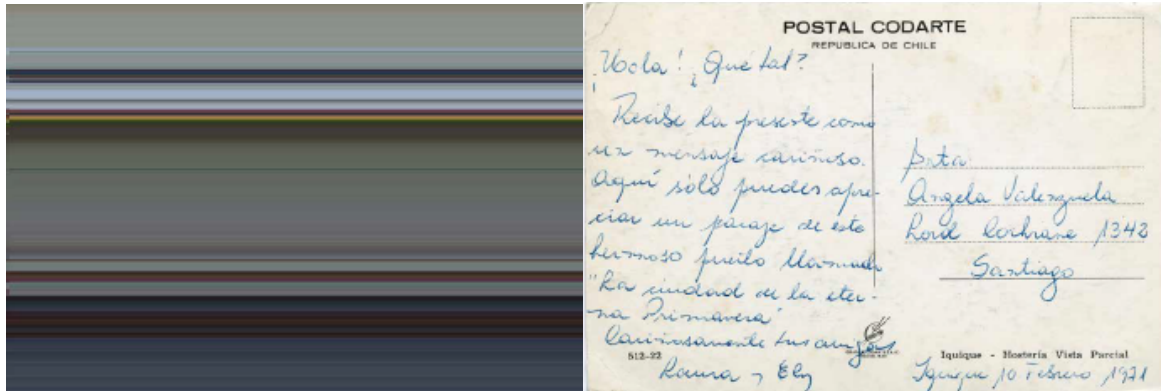 POSTAL CODARTE
REPUBLICA DE CHILE
¡Hola! ¿Qué tal?
Recibe la presente como
un mensaje cariñoso.
Aquí sólo puedes apre-
ciar un paraje de este
hermoso pueblo llamado
"La ciudad de la eter-
na Primavera"
Cariñosamente tus amigas
Laura y Ely
Srta
Angela Valenzuela
Lord Cochrane 1342
Santiago
512-22
Iquique - Hostería Vista Parcial
Iquique 10 Febrero 1971